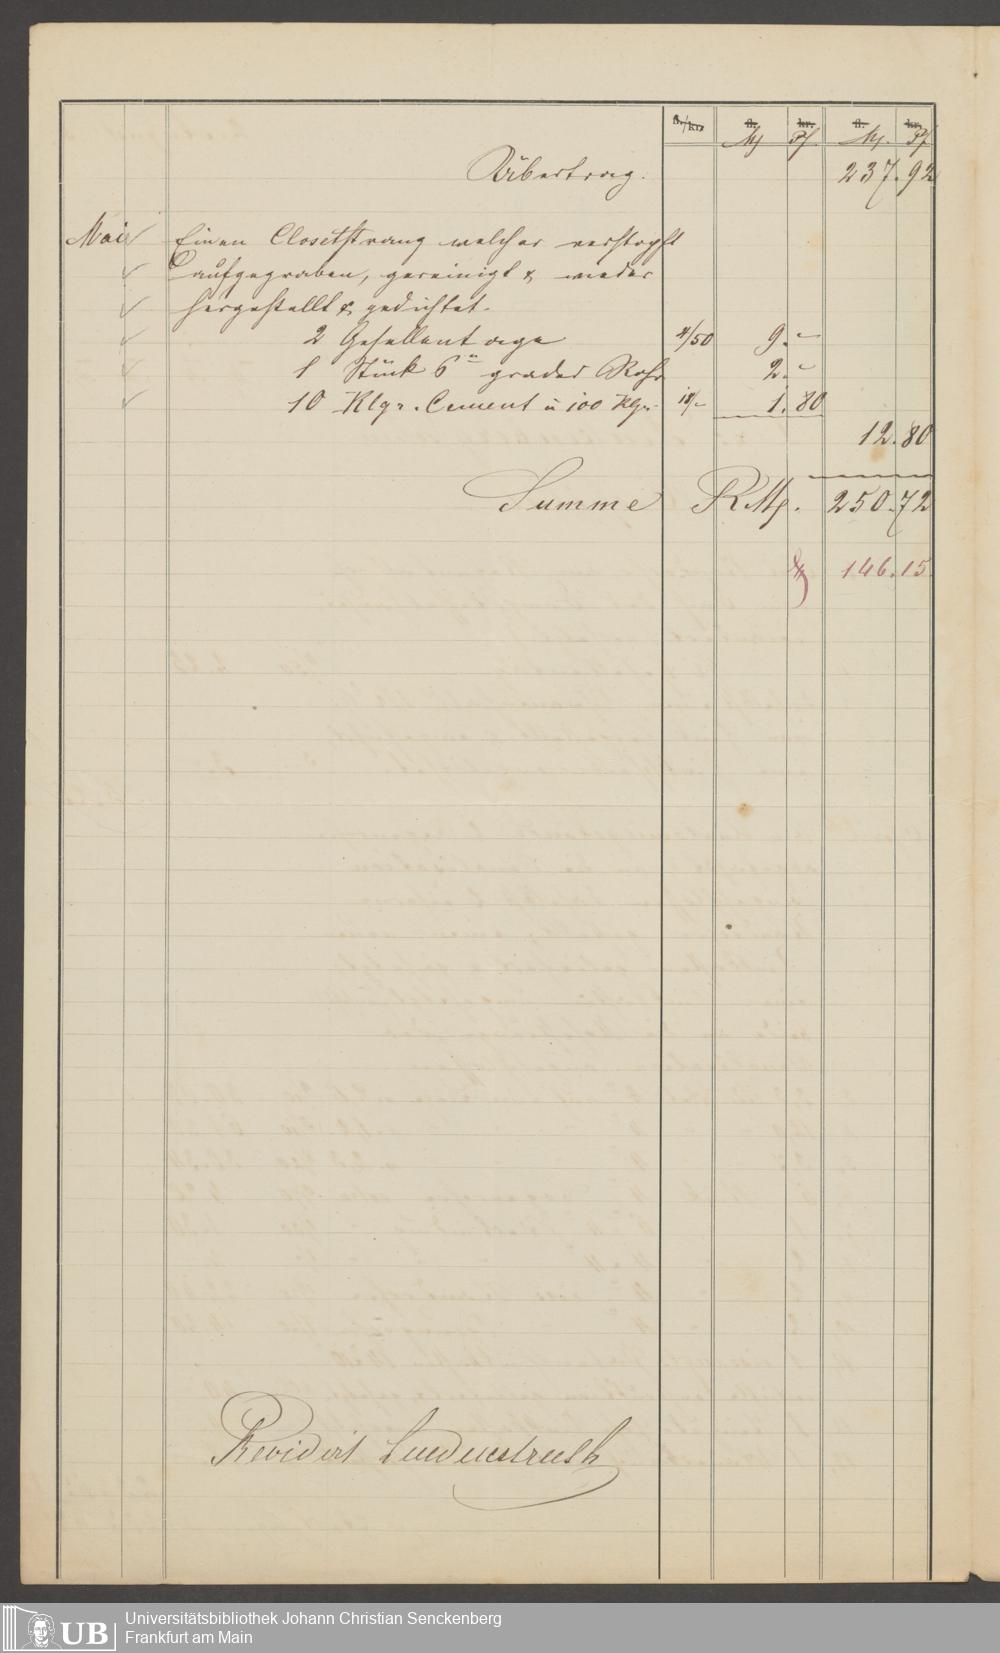 fl./kr. fl. kr. fl. kr.
M. Pf. M. Pf.
Übertrag. 237.92
Mai Einen Closetstrang welcher verstopft
aufgegraben, gereinigt & wieder
hergestellt & gedichtet.
2 Gesellentage 4/50 9.–
1 Stück 6" grades Rohr 2.–
10 Klgr. Cement à 100 Klgr. 18/– 1.80
12.80
Summe R.M. 250.72
146.15
Revidirt
Universitätsbibliothek Johann Christian Senckenberg
Frankfurt am Main
UB